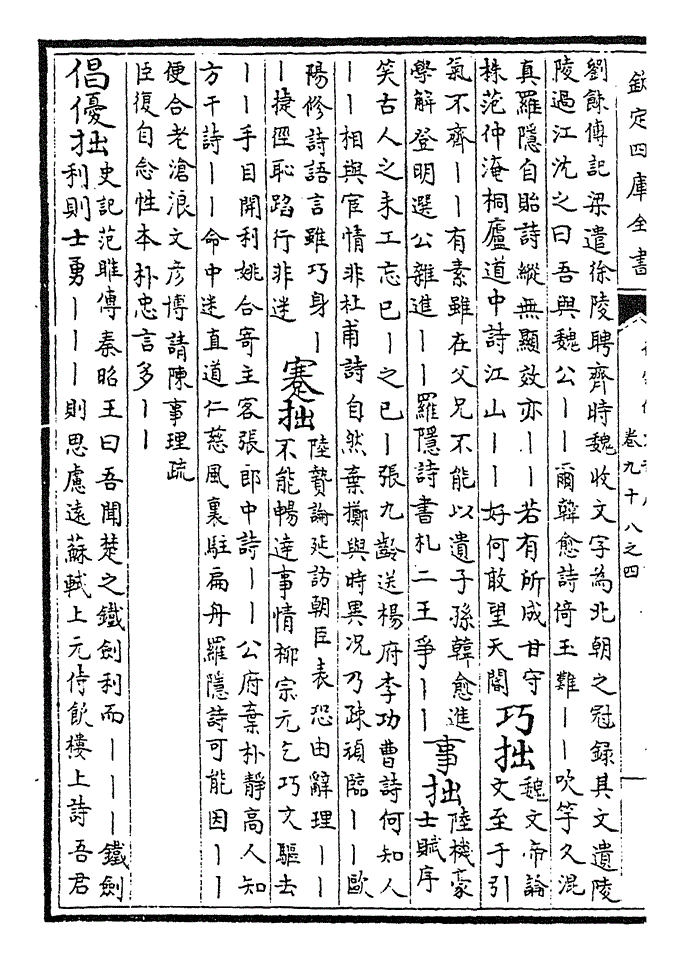 欽定四庫全書
卷九十八之四
劉餗傳記梁遣徐陵聘齊時魏收文字為北朝之冠錄其文遺陵
陵過江沈之曰吾與魏公丨丨爾韓愈詩倚玉難丨丨吹竽久混
真羅隱自貽詩縱無顯效亦丨丨若有所成甘守
株范仲淹桐廬道中詩江山丨丨好何敢望天閽
巧拙
魏文帝論
文至于引
氣不齊丨丨有素雖在父兄不能以遺子孫韓愈進
學解登明選公雜進丨丨羅隱詩書札二王爭丨丨
事拙
陸機豪
士賦序
笑古人之未工忘已丨之已丨張九齡送楊府李功曹詩何知人
丨丨相與宦情非杜甫詩自然棄擲與時異况乃疎頑臨丨丨歐
陽修詩語言雖巧身丨
丨捷徑恥蹈行非迷
蹇拙
陸贄論延訪朝臣表恐由辭理丨丨
不能暢達事情柳宗元乞巧文驅去
丨丨手目開利姚合寄主客張郎中詩丨丨公府棄朴靜高人知
方干詩丨丨命中迷直道仁慈風裏駐扁舟羅隱詩可能因丨丨
便合老滄浪文彦博請陳事理疏
臣復自念性本朴忠言多丨丨
倡優拙
史記范雎傳秦昭王曰吾聞楚之鐵劍利而丨丨丨鐵劍
利則士勇丨丨丨則思慮遠蘇軾上元侍飲樓上詩吾君